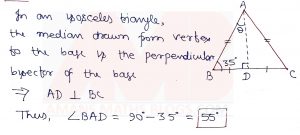 In an isosceles triangle,
the median drawn from vertex
to the base is the perpendicular
bisector of the base
⇒ AD ⊥ BC
Thus, ∠BAD = 90° - 35° = 55°
A
θ
35°
B
D
C